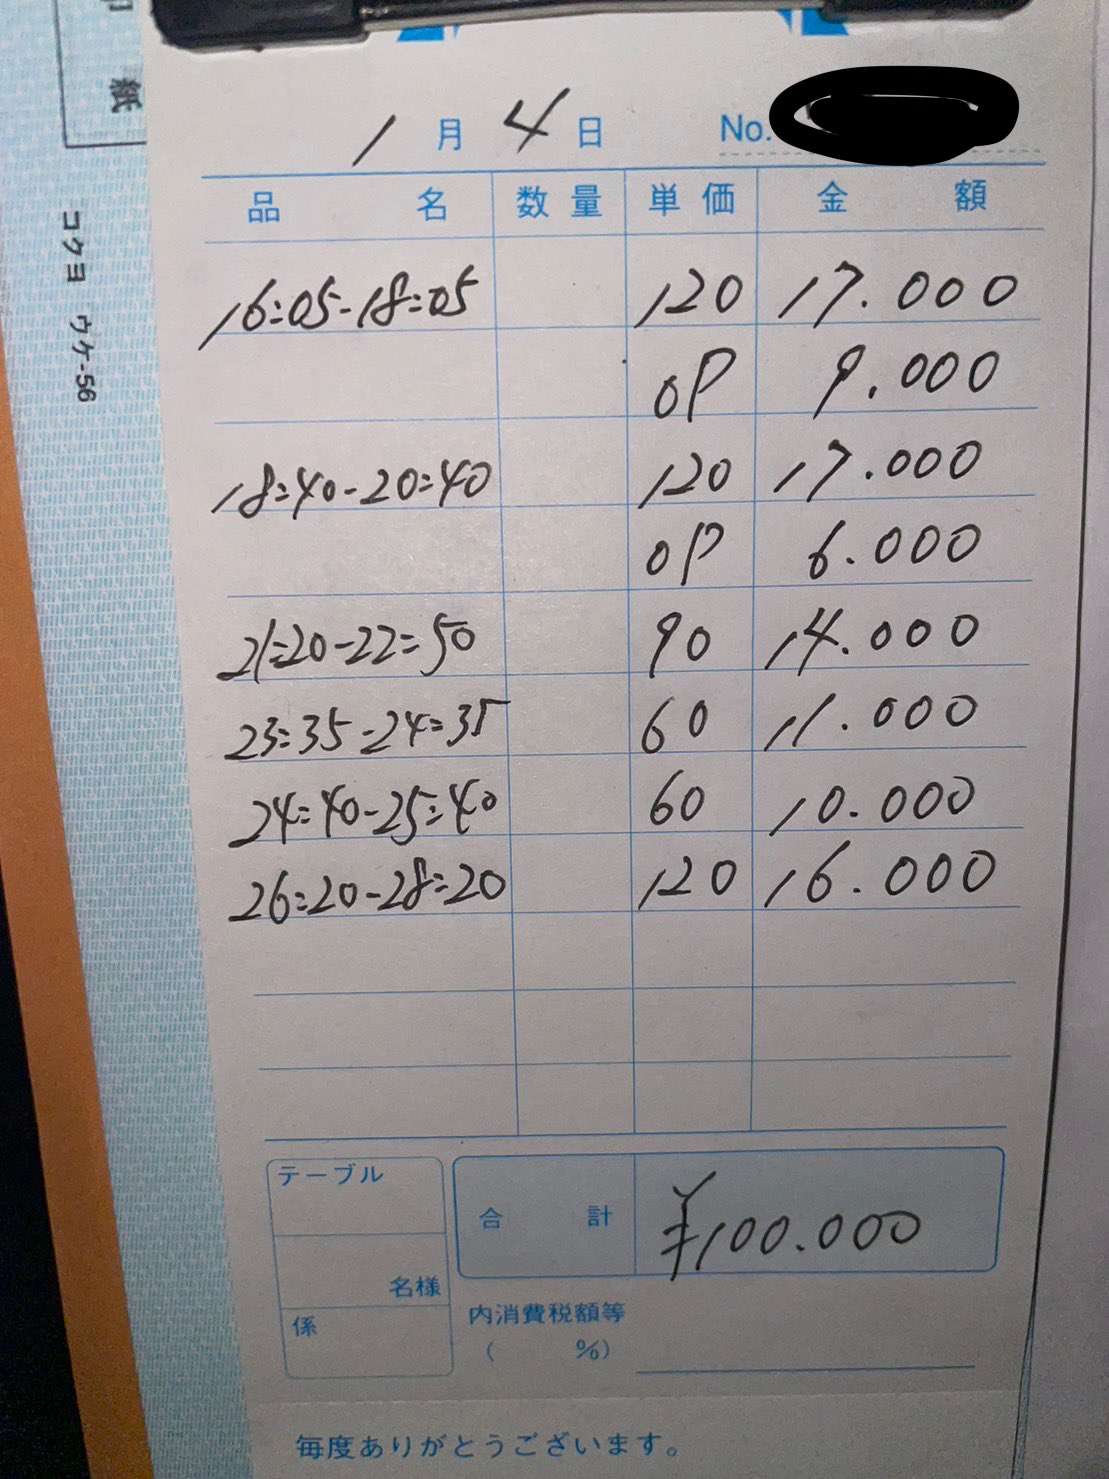 紙
コクヨ ウケ-56
1月4日 No.
品名 数量 単価 金額
16:05-18:05 120 17.000
OP 9.000
18:40-20:40 120 17.000
OP 6.000
21:20-22:50 90 14.000
23:35-24:35 60 11.000
24:40-25:40 60 10.000
26:20-28:20 120 16.000
テーブル
名様
係
合計 ¥100.000
内消費税額等
( %)
毎度ありがとうございます。